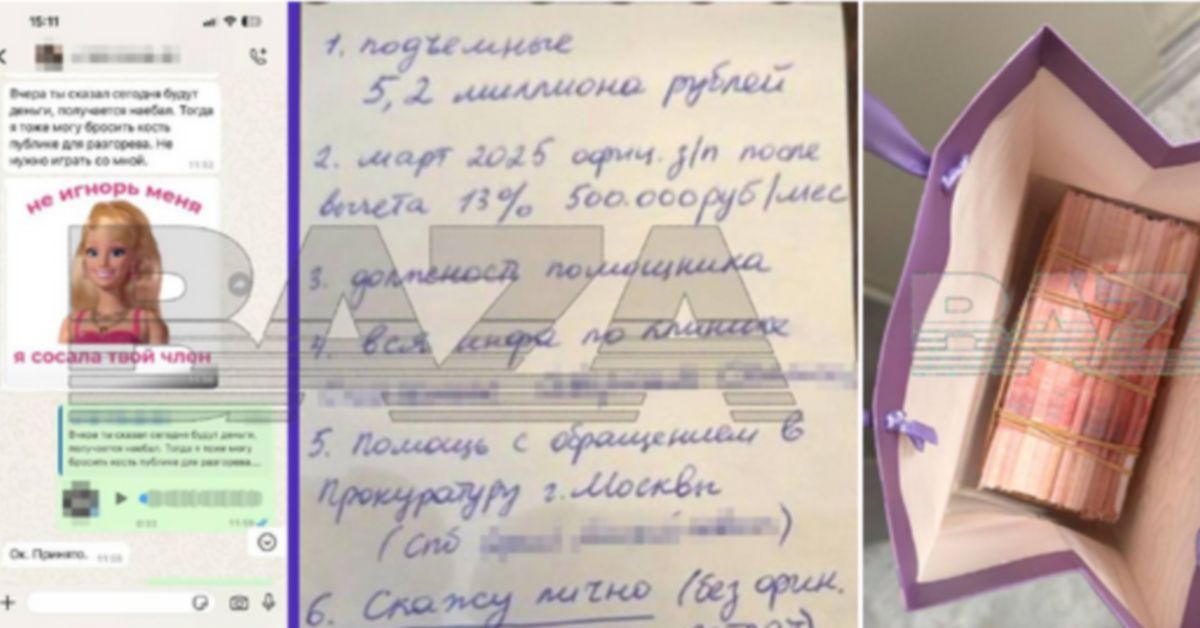 15:11
Вчера ты сказал сегодня будут
деньги, получается наебал. Тогда
я тоже могу бросить кость
публике для разогрева. Не
нужно играть со мной.
11:52
не игнорь меня
я сосала твой член
Вчера ты сказал сегодня будут деньги,
получается наебал. Тогда я тоже могу
бросить кость публике для разогрева....
0:33
11:58
Ок. Принято.
11:58
1. подъемные
5,2 миллиона рублей
2. март 2025 офиц. з/п после
вычета 13% 500.000руб/мес
3. должность помощника
4. вся инфа по клинике
5. помощь с обращением в
Прокуратуру г. Москвы
(спб
)
6. Скажу лично (без фин.
BAZA
BAZA